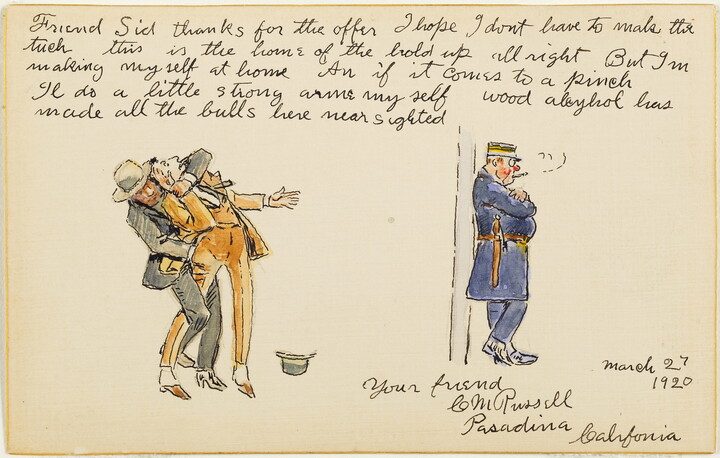 Friend Sid thanks for the offer I hope I dont have to make the
tuch this is the home of the hold up all right But Im
making myself at home An if it comes to a pinch
Il do a little strong arme my self wood alcyhol has
made all the bulls here near sighted
Your friend
CM Russell
Pasadina
Califonia
march 27
1920